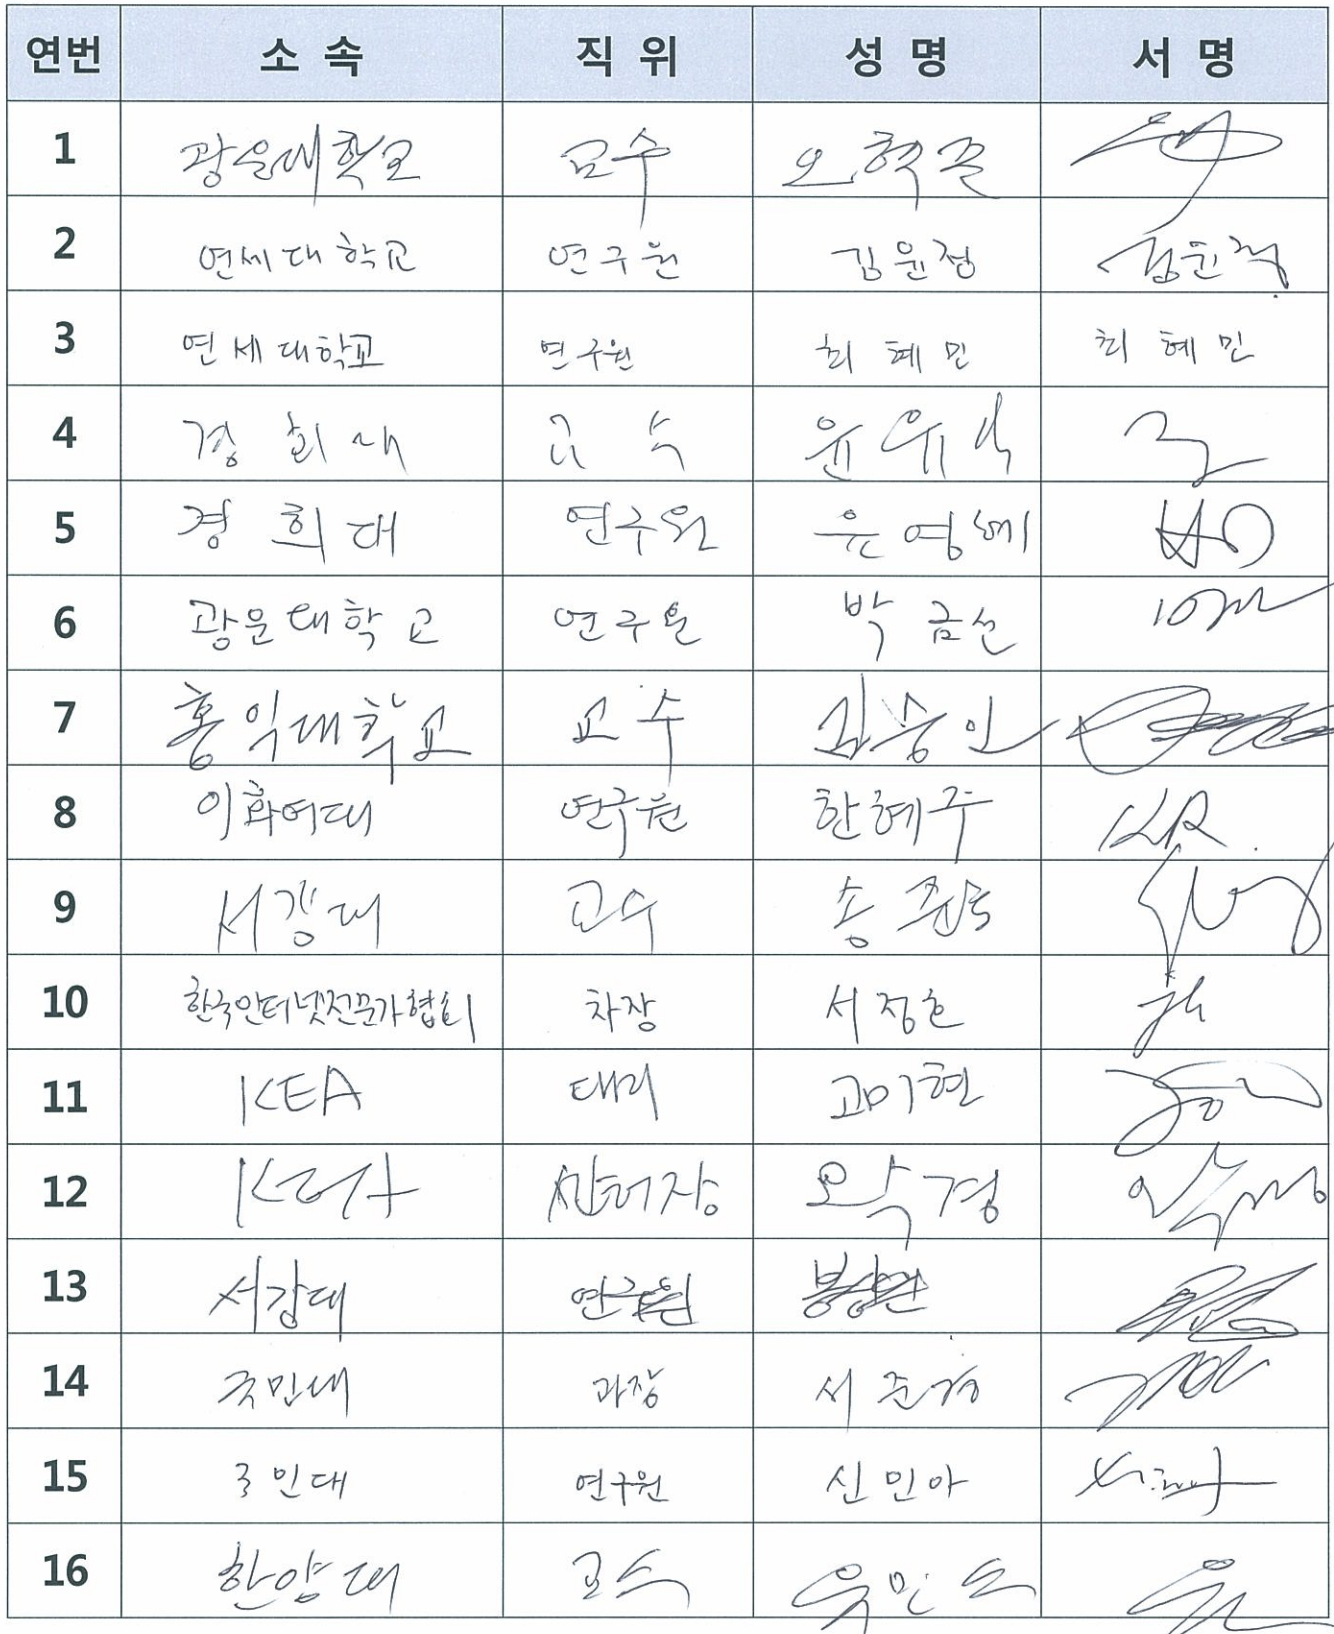 연번 소 속 직 위 성 명 서 명
1 광운대학교 교수
2 연세대학교 연구원 김윤정 김윤정
3 연세대학교 연구원 최혜민 최혜민
4 경희대 교수
5 경희대 연구원 윤영혜
6 광운대학교 연구원 박금선
7 홍익대학교 교수 김승인
8 이화여대 연구원 한혜주
9 서강대 교수
10 한국인터넷전문가협회 차장 서정호
11 KEA 대리 고미현
12 KEA 센터장
13 서강대 연구원
14 국민대 과장 서준경
15 국민대 연구원 신민아
16 한양대 교수